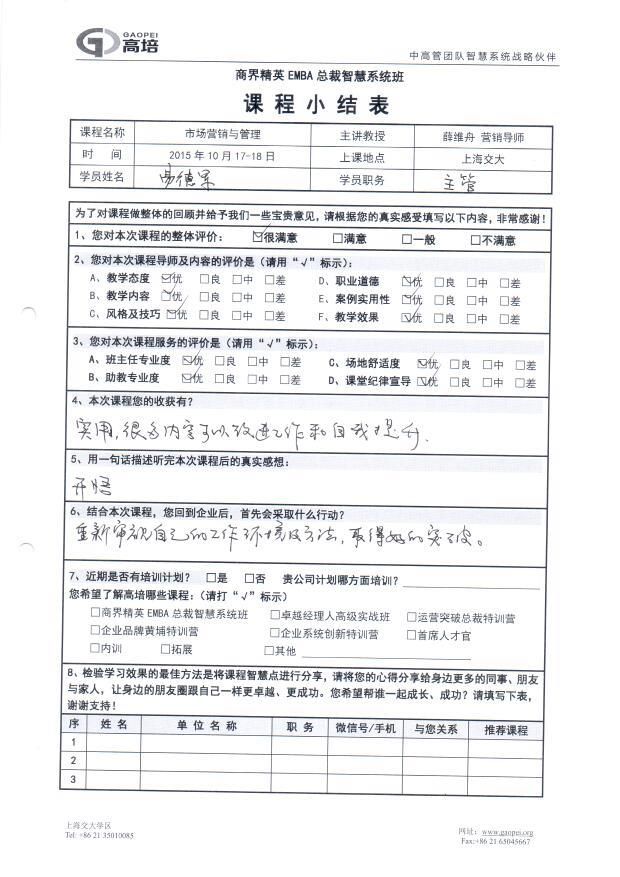 GAOPEI
高培
中高管团队智慧系统战略伙伴
商界精英 EMBA 总裁智慧系统班
课程小结表
课程名称 市场营销与管理 主讲教授 薛维舟 营销导师
时 间 2015 年 10 月 17-18 日 上课地点 上海交大
学员姓名 易德军 学员职务 主管
为了对课程做整体的回顾并给予我们一些宝贵意见,请根据您的真实感受填写以下内容,非常感谢!
1、您对本次课程的整体评价: ☑很满意 □满意 □一般 □不满意
2、您对本次课程导师及内容的评价是(请用“√”标示):
A、教学态度 ☑优 □良 □中 □差 D、职业道德 ☑优 □良 □中 □差
B、教学内容 ☑优 □良 □中 □差 E、案例实用性 ☑优 □良 □中 □差
C、风格及技巧 ☑优 □良 □中 □差 F、教学效果 ☑优 □良 □中 □差
3、您对本次课程服务的评价是(请用“√”标示):
A、班主任专业度 ☑优 □良 □中 □差 C、场地舒适度 ☑优 □良 □中 □差
B、助教专业度 ☑优 □良 □中 □差 D、课堂纪律宣导 ☑优 □良 □中 □差
4、本次课程您的收获有?
实用,很多内容可以改进工作和自我提升.
5、用一句话描述听完本次课程后的真实感想:
开悟
6、结合本次课程,您回到企业后,首先会采取什么行动?
重新审视自己的工作环境及方法,取得好的突破。
7、近期是否有培训计划? □是 □否 贵公司计划哪方面培训?
您希望了解高培哪些课程:(请打“√”标示)
□商界精英 EMBA 总裁智慧系统班 □卓越经理人高级实战班 □运营突破总裁特训营
□企业品牌黄埔特训营 □企业系统创新特训营 □首席人才官
□内训 □拓展 □其他
8、检验学习效果的最佳方法是将课程智慧点进行分享,请将您的心得分享给身边更多的同事、朋友
与家人,让身边的朋友圈跟自己一样更卓越、更成功。您希望帮谁一起成长、成功?请填写下表,
谢谢支持!
序 姓 名 单 位 名 称 职 务 微信号/手机 与您关系 推荐课程
1
2
3
上海交大学区
Tel: +86 21 35010085
网址: www.gaopei.org
Fax:+86 21 65045667